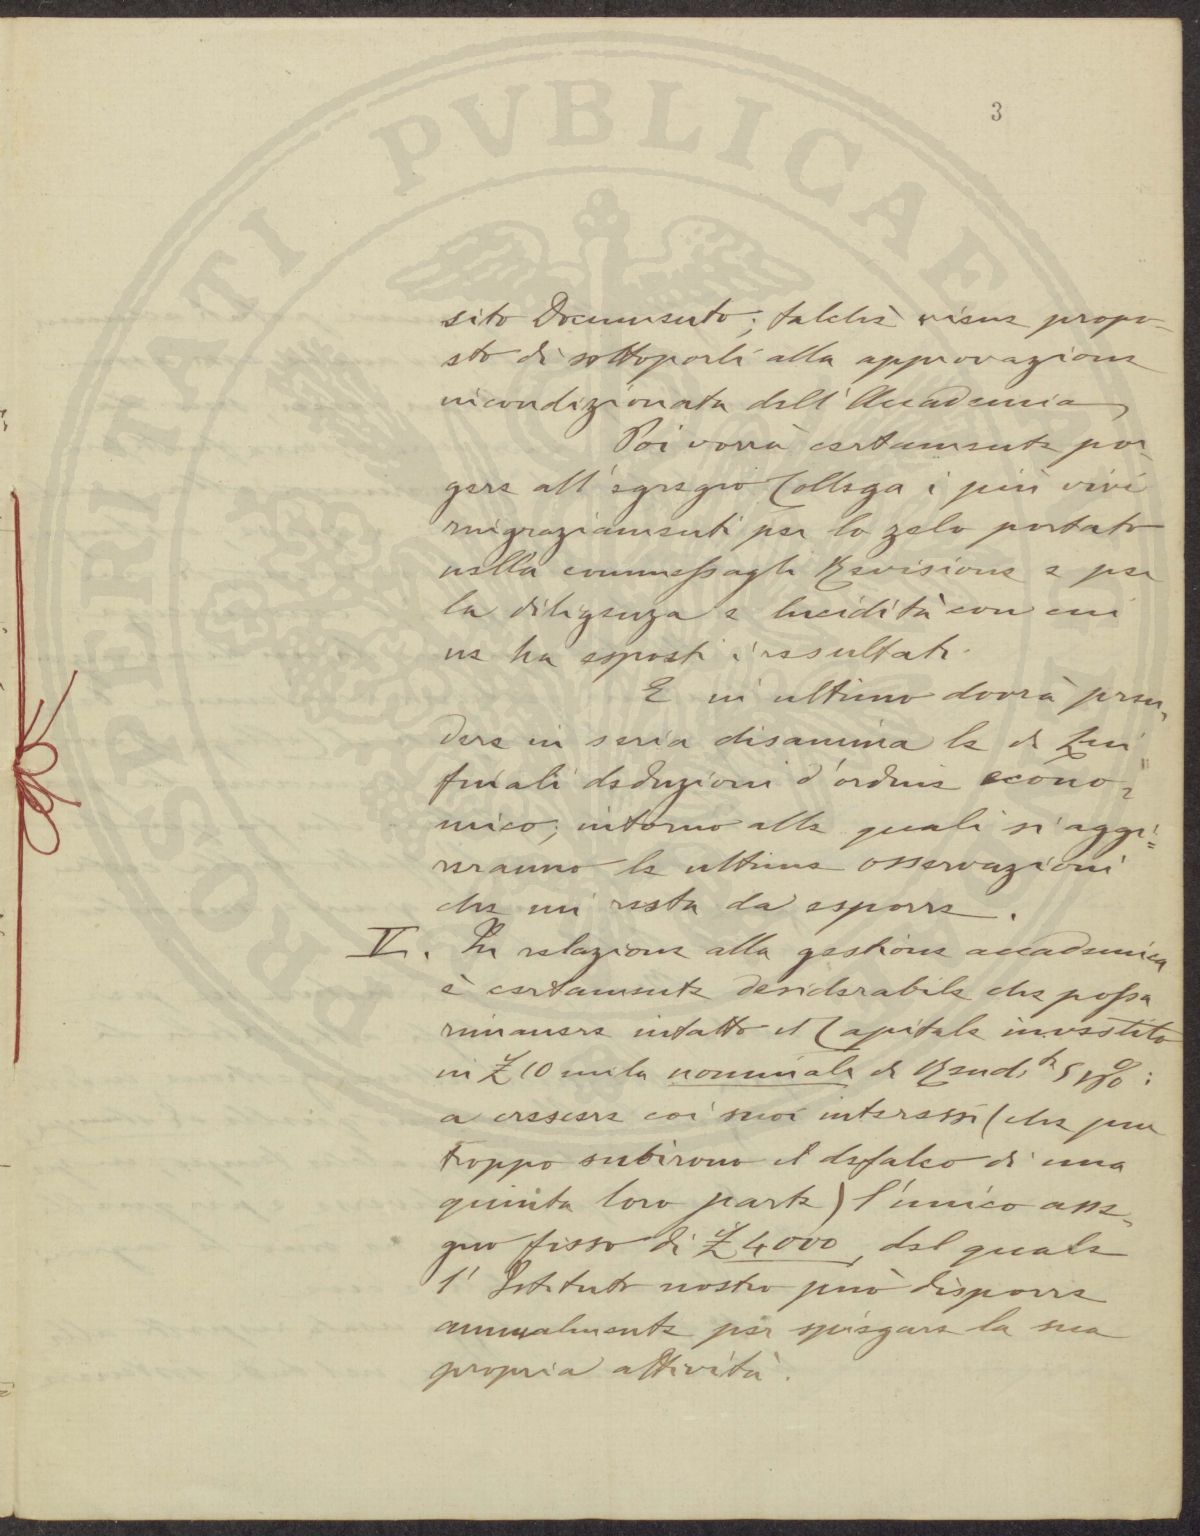 3
sito Documento; talchè viene propo-
sto di sottoporli alla approvazione
incondizionata dell'Accademia
Poi vorrà certamente por-
gere all'egregio Collega i più vivi
ringraziamenti per lo zelo portato
nella commessagli Revisione e per
la diligenza e lucidità con cui
ne ha esposti i resultati.
E in ultimo dovrà pren-
dere in seria disamina le di Lui
finali deduzioni d'ordine econo-
mico; intorno alle quali si aggi-
reranno le ultime osservazioni
che mi resta da esporre.
V. In relazione alla gestione accademica
è certamente desiderabile che possa
rimanere intatto il Capitale investito
in £ 10 mila nominale di Rendte 5 p%:
a crescere coi suoi interessi (che pur
troppo subirono il defalco di una
quinta loro parte) l'unico asse-
gno fisso di £ 4000, del quale
l'Istituto nostro può disporre
annualmente per spiegare la sua
propria attività.
PROSPERITATI PVBLICAE